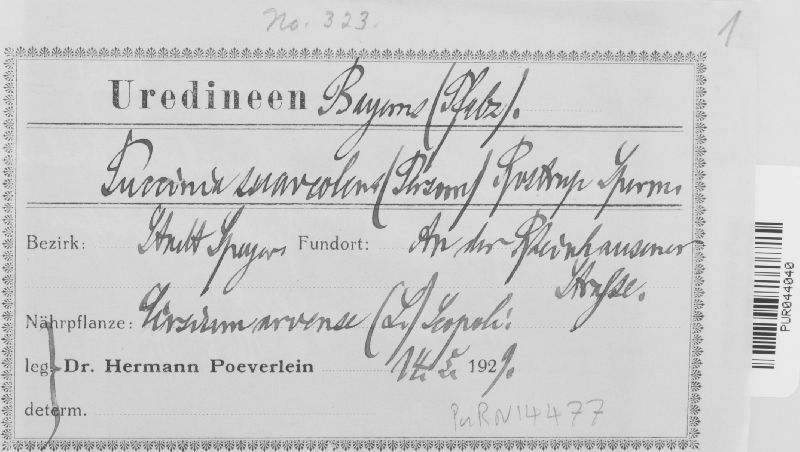 No. 323.
1
Uredineen Bayerns (Pfalz).
Puccinia suaveolens (Persoon) Rostrup Sperm.
Bezirk: Stadt Speyer Fundort: An der Rheinhausener
Strasse.
Nährpflanze: Cirsium arvense (L.) Scopoli.
leg. Dr. Hermann Poeverlein 14. 5. 1929.
determ.
PurRN14477
PUR044040